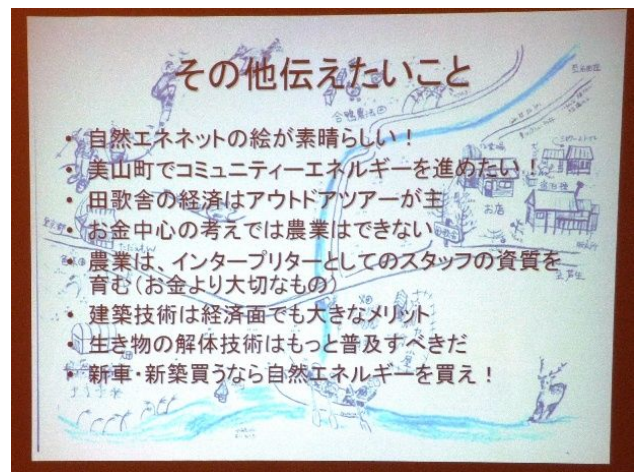 その他伝えたいこと
合鴨農法田
• 自然エネネットの絵が素晴らしい！
• 美山町でコミュニティーエネルギーを進めたい！
• 田歌舎の経済はアウトドアツアーが主
お店
• お金中心の考えでは農業はできない
• 農業は、インタープリターとしてのスタッフの資質を
育む（お金より大切なもの）
• 建築技術は経済面でも大きなメリット
• 生き物の解体技術はもっと普及すべきだ
• 新車・新築買うなら自然エネルギーを買え！